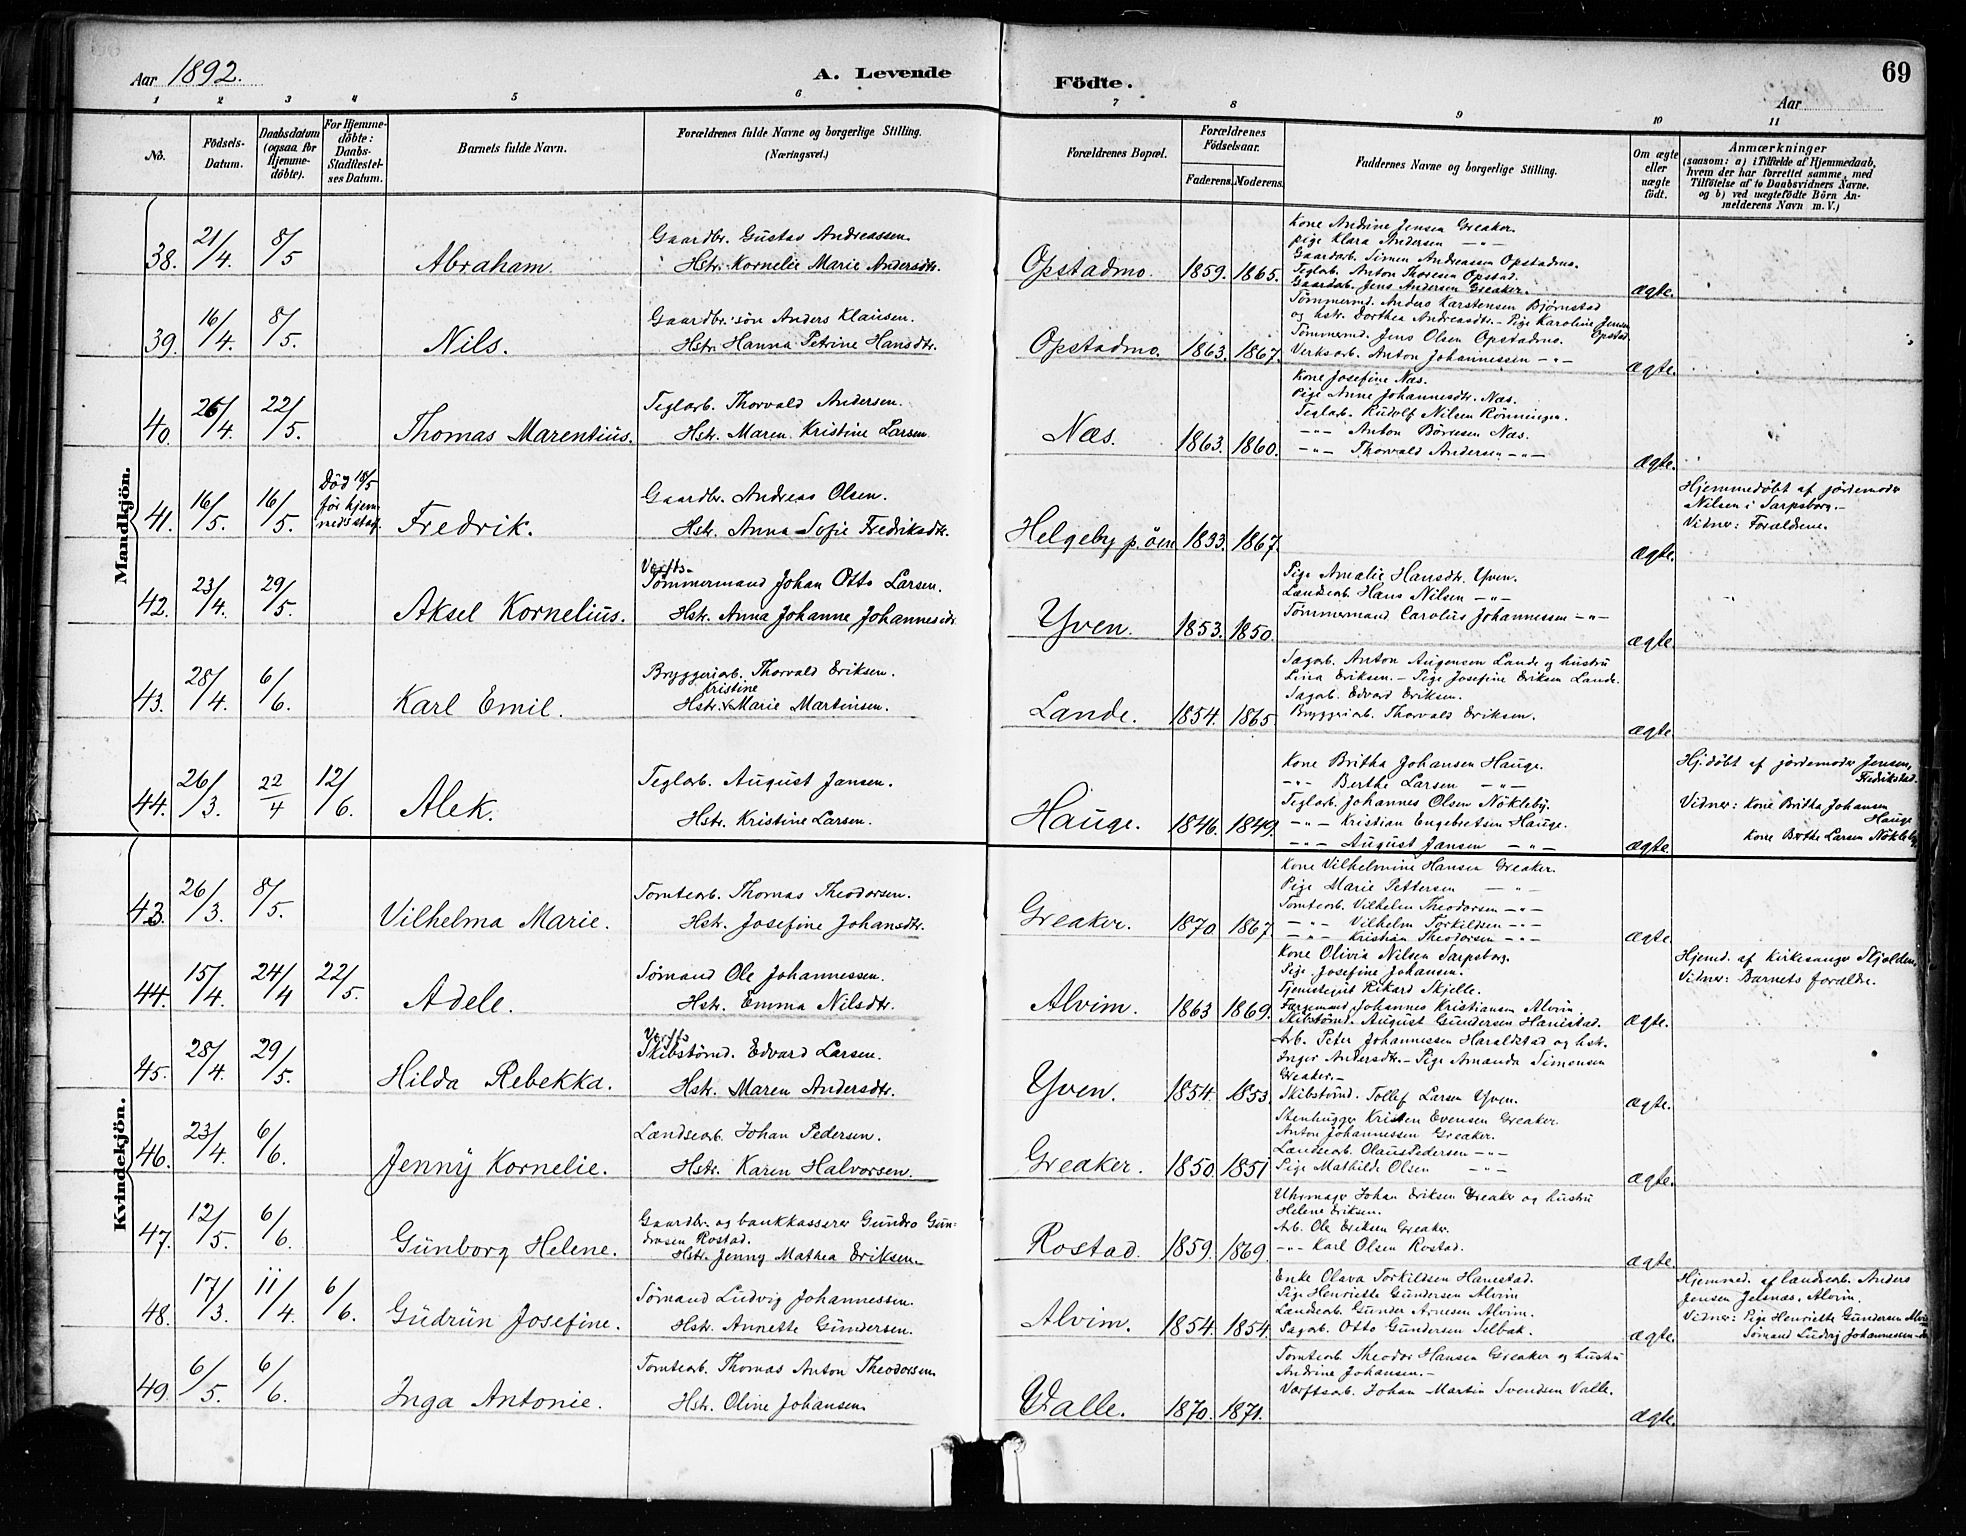 Aar 1892.
A. Levende
Födte.
69
Aar
1 2 3 4 5 6 7 8 9 10 11
No.
Födsels-Datum.
Daabsdatum (ogsaa for Hjemmedöbte).
For Hjemmedöbte: Daabs-Stadfæstelses Datum.
Barnets fulde Navn.
Forældrenes fulde Navne og borgerlige Stilling.
(Næringsvei.)
Forældrenes Bopæl.
Forældrenes Födselsaar.
Faderens. Moderens.
Faddernes Navne og borgerlige Stilling.
Om ægte eller uægte födt.
Anmærkninger
(saasom: a) i Tilfælde af Hjemmedaab,
hvem der har forrettet samme, med
Tilföielse af to Daabsvidners Navne.
og b) ved uægtefödte Börn Anmelderens Navn m. V.)
Mandkjön.
38. 21/4. 8/5 Abraham.
Gaardbr. Gustav Andreassen.
Hstr. Kornelie Marie Andersdtr.
Opstadmo. 1859. 1865.
Kone Andrine Jensen Greaker.
pige Klara Andersen —"—
Gaardarb. Simen Andreassen Opstadmo.
Teglarb. Anton Thoresen Opstad.
Gaardarb. Jens Andersen Greaker.
ægte.
39. 16/4. 8/5. Nils.
Gaardbr. sön Anders Klausen.
Hstr. Hanna Petrine Hansdtr.
Opstadmo. 1863. 1867.
Tømmermd. Anders Karstensen Bjørnstad
og hstr. Dorthea Andreasdtr. - Pige Karoline Jensen
Opstad.
Tømmermd. Jens Olsen Opstadmo.
Verksarb. Anton Johannessen —"—
ægte.
40. 26/4. 22/5. Thomas Marentius.
Teglarb. Thorvald Andersen.
Hstr. Maren Kristine Larsen.
Næs. 1863. 1860.
Kone Josefine Næs.
Pige Anne Johannesdtr. Næs.
Teglarb. Rudolf Nilsen Rønningen.
—"— Anton Børresen Næs.
—"— Thorvald Andersen —"—
ægte.
41. 16/5. 16/5.
Död 18/5
før hjem-
meds stadf.
Fredrik.
Gaardbr. Andreas Olsen.
Hstr. Anna Sofie Fredriksdtr.
Helgeby p. øen 1833. 1867.
ægte.
Hjemmedöbt af jordemoder
Nilsen i Sarpsborg.—
Vidner: Forældrene.
42. 23/4. 29/5. Aksel Kornelius.
Verfts-
Tømmermand Johan Otto Larsen.
Hstr. Anna Johanne Johannesdtr.
Yven. 1853. 1850.
Pige Amalie Hansdtr. Yven.
Landsarb. Hans Nilsen —"—
Tømmermand Carolus Johannessen —"—
ægte.
43. 28/4. 6/6. Karl Emil.
Bryggeriarb. Thorvald Eriksen.
Kristine
Hstr. Marie Martinsen.
Lande. 1854. 1865.
Sagarb. Anton Augensen Lande og hustru
Lina Eriksen. - Pige Josefine Eriksen Lande.
Sagarb. Edvard Eriksen.
Bryggeriarb. Thorvald Eriksen.
ægte.
44. 26/3. 22/4 12/6. Alek.
Teglarb. August Jansen.
Hstr. Kristine Larsen.
Hauge. 1846. 1849.
Kone Britha Johansen Hauge.
—"— Berthe Larsen —"—
Teglarb. Johannes Olsen Nökleby.
—"— Kristian Engebretsen Hauge.
—"— August Jansen —"—
ægte.
Hj.döbt af jordemoder Jensen,
Fredrikstad.
Vidner: Kone Britha Johansen
Hauge
Kone Berthe Larsen Nökleby
Kvindekjön.
43. 26/3. 8/5. Vilhelma Marie.
Tomtearb. Thomas Theodorsen.
Hstr. Josefine Johansdtr.
Greaker. 1870. 1867.
Kone Vilhelmine Hansen Greaker.
Pige Marie Pettersen —"—
Tomtearb. Vilhelm Theodorsen —"—
—"— Vilhelm Torkildsen —"—
—"— Kristian Theodorsen —"—
ægte.
44. 15/4. 24/4 22/5. Adele.
Sømand Ole Johannessen.
Hstr. Emma Nilsdtr.
Alvim. 1863 1869.
Kone Olivia Nilsen Sarpsborg.
Pige Josefine Johansen.
Tjenstegut Rikard Skjelle.
Færgemand Johannes Kristiansen Alvim.
Skibstømd. August Gundersen Hanestad.
ægte.
Hjemd. af Kirkesanger Skjolden.
Vidner: Barnets forældre.
45. 28/4. 29/5. Hilda Rebekka.
Verfts
Skibstømd. Edvard Larsen.
Hstr. Maren Andersdtr.
Yven. 1854. 1853.
Arb. Peter Johannessen Haraldstad og hst.
Inger Andersdtr. - Pige Amanda Simensen
Greaker.—
Skibstømd. Tollef Larsen Yven.
ægte.
46. 23/4. 6/6. Jenny Kornelie.
Landsearb. Johan Pedersen.
Hstr. Karen Halvorsen.
Greaker. 1850. 1851
Stenhugger Kristen Evensen Greaker.
Anton Johannessen Greaker.
Landsearb. Olaus Pedersen —"—
Pige Mathilde Olsen —"—
ægte.
47. 12/5. 6/6. Gunborg Helene.
Gaardbr. og bankkasserer Gundro Gun-
drosen Rostad.
Hstr. Jenny Mathea Eriksen.
Rostad. 1859. 1869.
Uhrmager Johan Eriksen Greaker og hustru
Helene Eriksen.
Arb. Ole Eriksen Greaker.
—"— Karl Olsen Rostad.
ægte.
48. 17/3. 11/4. 6/6. Gudrun Josefine.
Sømand Ludvig Johannessen.
Hstr. Annette Gundersen.
Alvim. 1854. 1854
Enke Olava Torkildsen Hanestad.
Pige Henriette Gundersen Alvim
Landsearb. Gunder Arnesen Alvim.
Sagarb. Otto Gundersen Selbak.
ægte.
Hjemmed. af landsearb. Anders
Jensen Jelsnæs, Alvim.
Vidner: Pige Henriette Gundersen Alvim
Sømand Ludvig Johannessen
49. 6/5. 6/6. Inga Antonie.
Tomtearb. Thomas Anton Theodorsen
Hstr. Oline Johansen
Valle. 1870. 1871.
Tomtearb. Theodor Hansen Greaker og hustru
Andrine Johansen.—
Værftsarb. Johan Martin Svendsen Valle.
ægte.